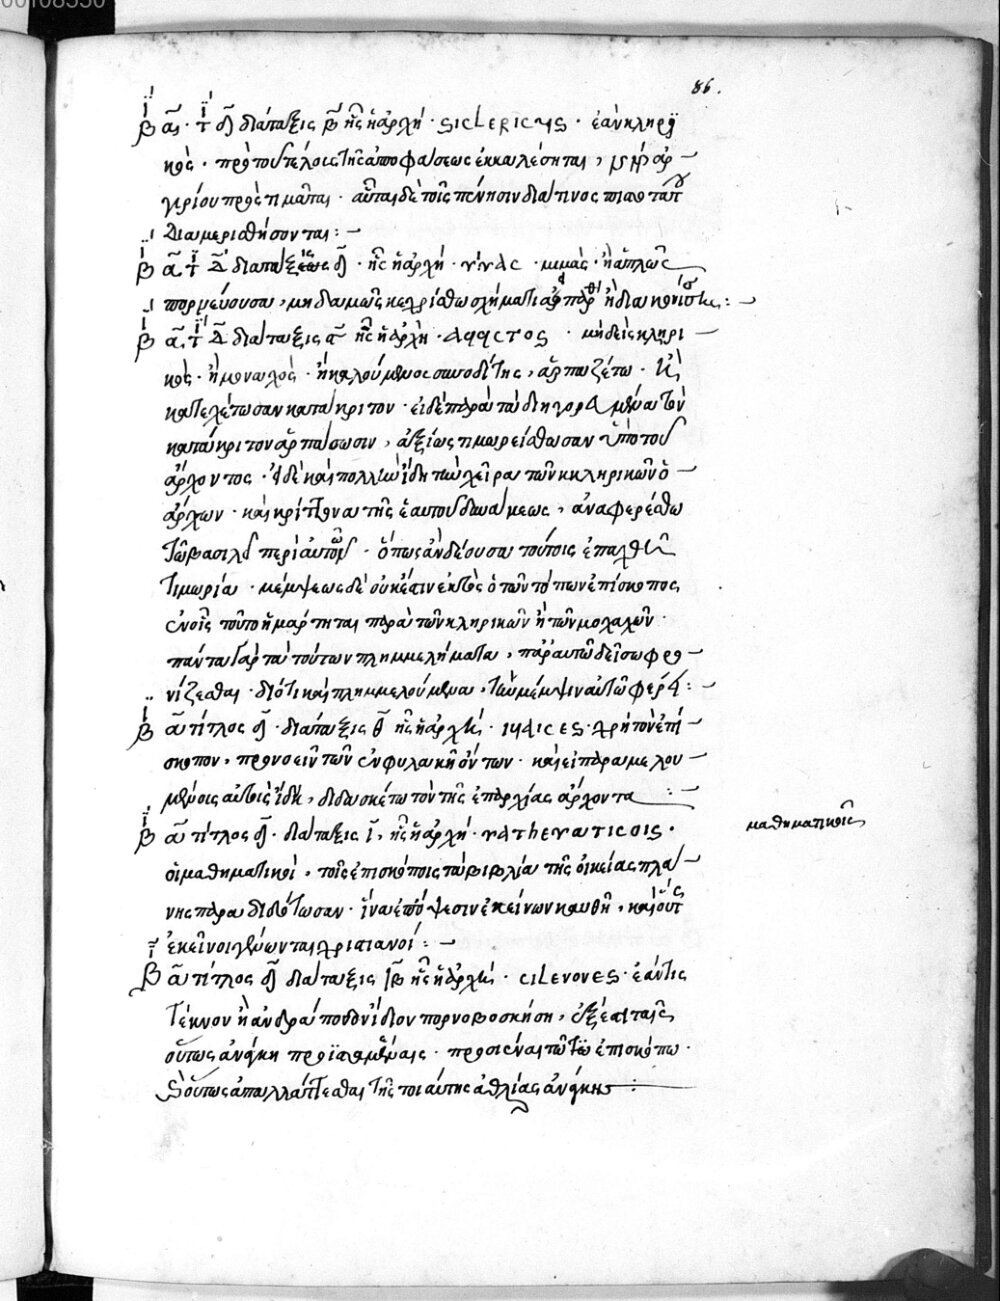 86.
β̅ α̅. τ̅ δ̅ διάταξις β̅ ἧς ἡ ἀρχή · SICLERICUS · ἐὰν κληρι
κὸς · πρὸ τοῦ τέλους τῆς ἀποφάσεως ἐκκαλέσηται,
γυρίου προστιμᾶται · αὗται δὲ τοῖς πένησιν διά τινος πιστοτάτου
διαμερισθήσονται : –
β̅ α̅. τ̅ δ̅ διατάξεως · ἧς ἡ ἀρχή · μιμὰς · ἢ ἁπλῶς
πορνεύουσα, μηδαμῶς κεχρίσθω σχήματι
β̅ α̅. τ̅ δ̅ διάταξις α̅ ἧς ἡ ἀρχή · ADDICTOS · μηδεὶς κληρι
κὸς · ἢ μοναχὸς · ἢ καλούμενος συνοδίτης, ἁρπαζέτω · καὶ
κατεχέτωσαν κατάκριτον · εἰ δὲ παρὰ τὰ διηγορευμένα τὸν
κατάκριτον ἁρπάσωσιν, ἀξίως τιμωρείσθωσαν ὑπὸ τοῦ
ἄρχοντος · εἰ δὲ καὶ πολλὴν ἴδῃ τὴν χεῖρα τῶν κληρικῶν ὁ
ἄρχων · καὶ κρίττονα τῆς ἑαυτοῦ δυνάμεως, ἀναφερέσθω
τῷ βασιλεῖ περὶ αὐτῶν · ὅπως ἂν δέουσα τούτοις ἐπαχθῇ
τιμωρία · μέμψεως δὲ οὐκ ἔστιν ἐκτὸς ὁ τῶν τόπων ἐπίσκοπος,
ἐν οἷς τοῦτο ἡμάρτηται παρὰ τῶν κληρικῶν ἢ τῶν μοναχῶν ·
πάντα γὰρ τὰ τούτων πλημμελήματα, παρ' αὐτῶ δεῖ σωφρο
νίζεσθαι · διότι καὶ πλημμελούμενα, τὴν μέμψιν αὐτῶ φέρει : –
β̅ α̅ τίτλος δ̅ · διάταξις θ̅ ἧς ἡ ἀρχή · IUDICES · χρὴ τὸν ἐπί
σκοπον, προνοεῖν τῶν ἐν φυλακῇ ὄντων · καὶ εἰ παραμελου
μένους αὐτοὺς ἴδῃ, διδασκέτω τὸν τῆς ἐπαρχίας ἄρχοντα : –
β̅ α̅ τίτλος δ̅ · διάταξις ι̅, ἧς ἡ ἀρχή · MATHEMATICOIS ·
μαθηματικοῖς
οἱ μαθηματικοὶ, τοῖς ἐπισκόποις τὰ βιβλία τῆς οἰκείας πλά
νης παραδιδότωσαν · ἵνα ἐπ' ὄψεσιν ἐκείνων καυθῇ, καὶ οὕτως
ἐκεῖνοι γένωνται χριστιανοί : –
β̅ α̅ τίτλος δ̅ διάταξις ιβ̅ ἧς ἡ ἀρχή · SILENONES · ἐάν τις
τέκνον ἢ ἀνδράποδον ἴδιον πορνοβοσκήσῃ, ἐξέσται ταῖς
οὕτως ἀνάγκῃ προϊσταμέναις · προσιέναι τῶ ἐπισκόπω ·
καὶ οὕτως ἀπαλλάττεσθαι τῆς τοιαύτης ἀθλίας ἀνάγκης :